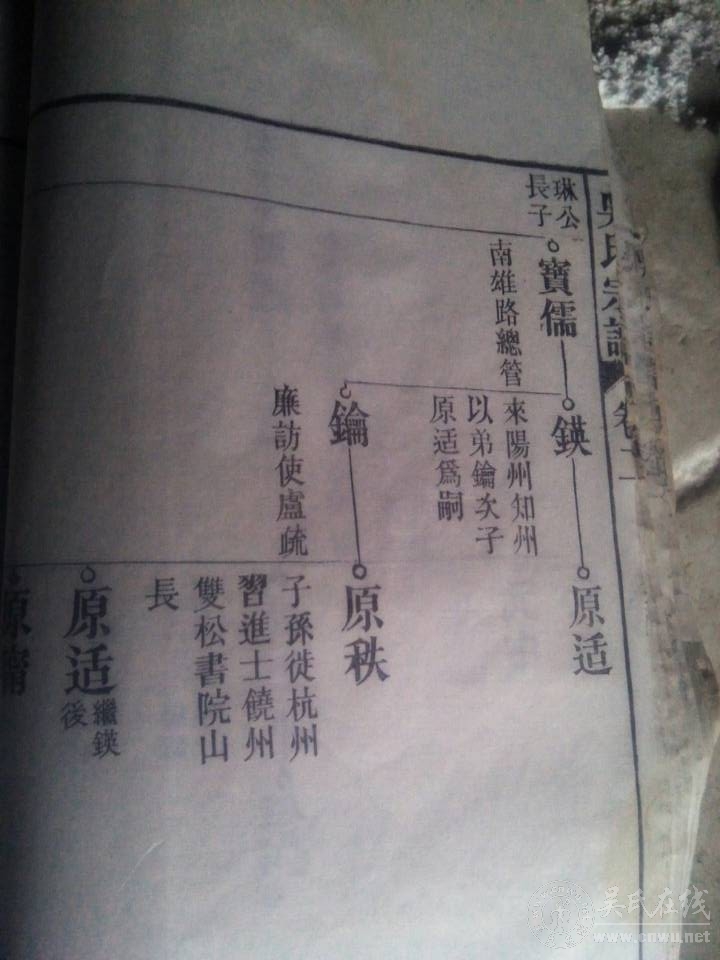 吳氏宗譜
卷十一
琳公
長子
寶儒
南雄路總管
鍈
來陽州知州
以弟鑰次子
原适爲嗣
原适
鑰
廉訪使盧疏
原秩
子孫徙杭州
習進士饒州
雙松書院山
長
原适
繼鍈
後
吴氏在线
www.cnwu.net